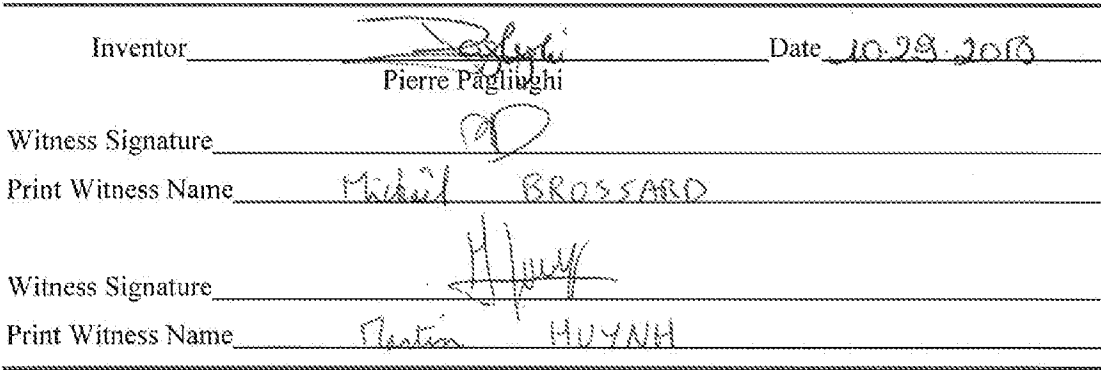 Inventor Date 10.29.2013
Pierre Pagliughi
Witness Signature
Print Witness Name Mickaël BROSSARD
Witness Signature
Print Witness Name Martin HUYNH